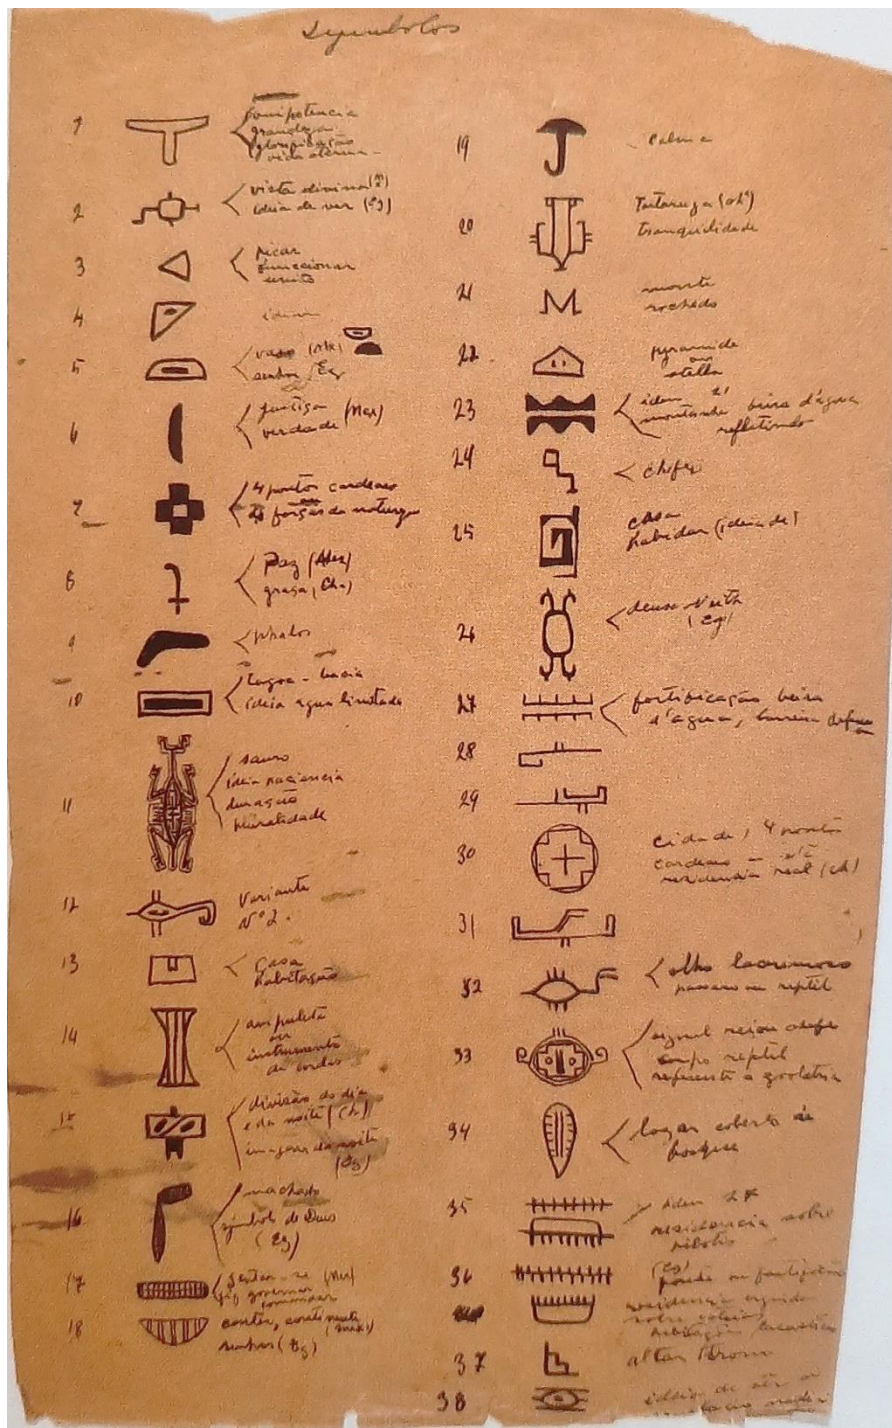 Symbolos
1 omnipotencia
grandeza
glorificação
vida eterna
2 vista divina
ideia de ver (Eg)
3 picar
funccionar
4 idem
5 vaso (Mx)
senhor Eg
6 justiça (Mex)
verdade
7 4 pontos cardeaes
forças da natureza
8 Paz
graça (Ch.)
9 phalos
10 lagoa - bacia
ideia agua limitada
11 sauro
ideia paciencia
duração
pluralidade
12 Variante
Nº 2.
13 Casa
habitação
14 ampulheta
ou
instrumento
de cordas
15 divisão do dia
e da noite (Ch)
imagem da noite
(Eg)
16 machado
symbolo de Deus
(Eg)
17 (Mex)
governar
commandar
18 conter, continente
(Mex)
senhor (Eg)
19 calma
20 Tartaruga
tranquilidade
21 monte
rochedo
22 pyramide
ou
stella
23 idem 21
montanha beira d'agua
reflectindo
24 chefe
25 casa
habitar (ideia de)
26 deusa Neith
(Eg)
27 fortificação beira
d'agua, barreira defesa
28
29
30 cidade, 4 pontos
cardeaes
residencia real (Ch)
31
32 olho lacrimoso
passaro ou reptil
33 chefe
corpo reptil
representa a zoolatria
34 logar coberto de
bosque
35 idem 27
residencia sobre
pilotis
36 (Eg)
residencia erguida
sobre
habitação lacustre
37 altar throno
38 ideia de